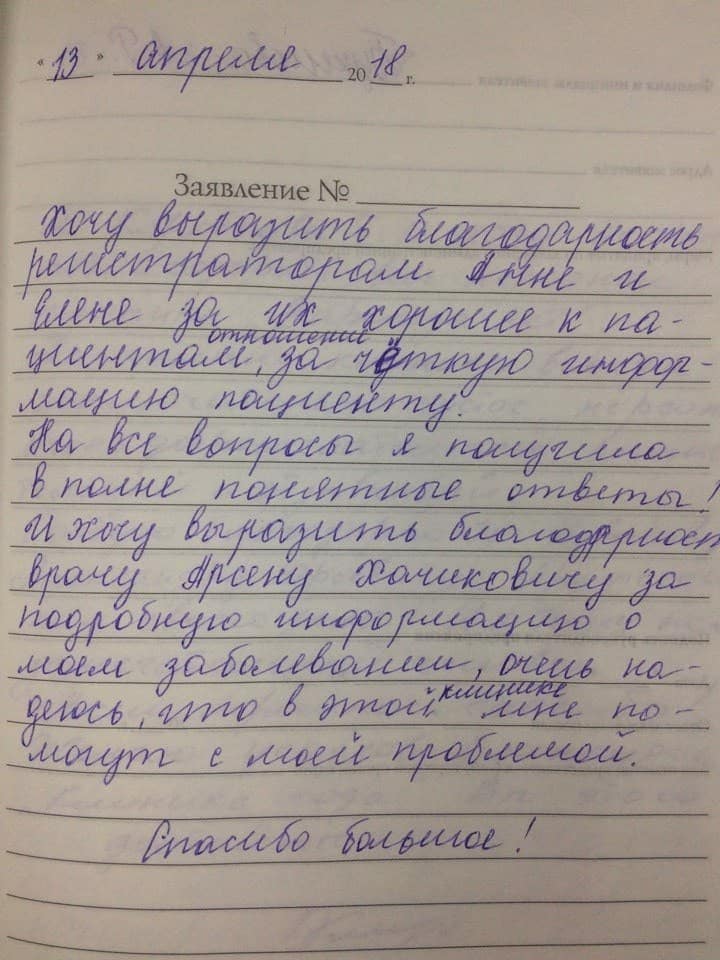 "13" апреля 2018 г.
Заявление №
Хочу выразить благодарность
регистраторам Анне и
Елене за их хорошее к па-
отношение
циентам, за чёткую инфор-
мацию пациенту.
На все вопросы я получила
в полне понятные ответы!
И хочу выразить благодарност
врачу Арсену Хачиковичу за
подробную информацию о
моем заболевании, очень на-
клинике
деюсь, что в этой мне по-
могут с моей проблемой.
Спасибо большое!